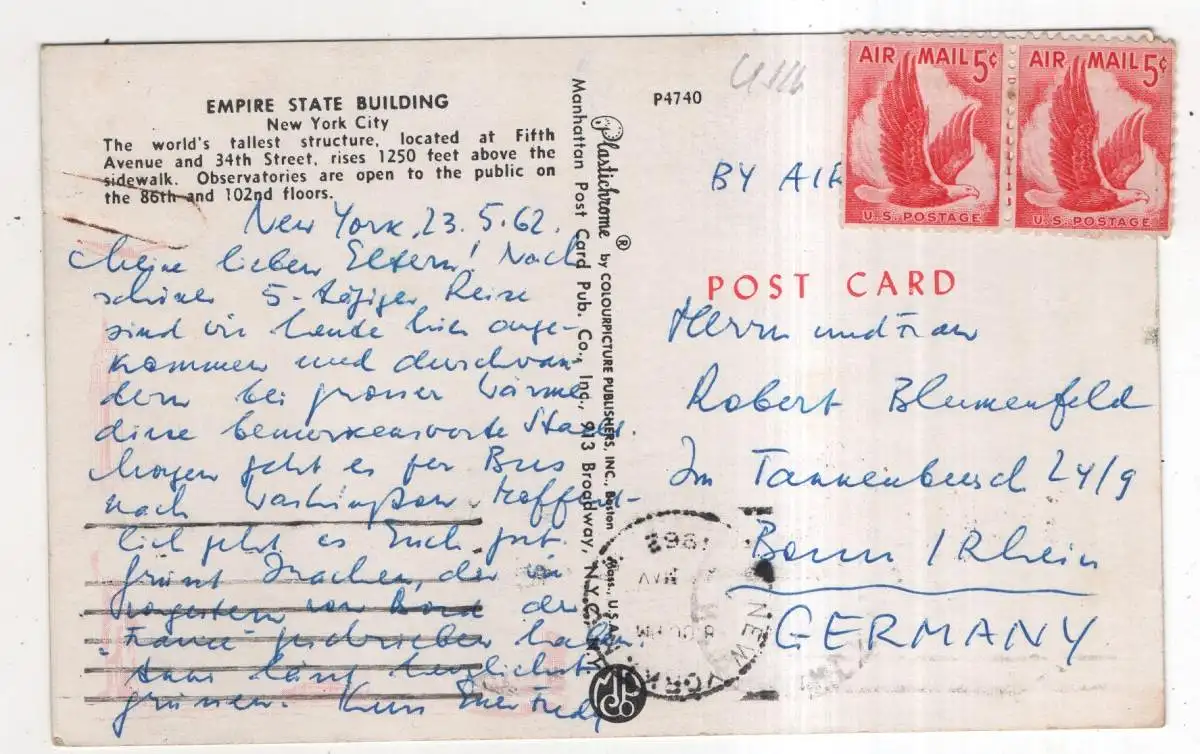 EMPIRE STATE BUILDING
New York City
The world's tallest structure, located at Fifth
Avenue and 34th Street, rises 1250 feet above the
sidewalk. Observatories are open to the public on
the 86th and 102nd floors.
New York, 23.5.62.
Meine lieben Eltern! Nach
schöner 5-tägiger Reise
sind wir heute hier ange-
kommen und durchwan-
dern bei grosser Wärme
diese bemerkenswerte Stadt.
Morgen geht es per Bus
nach Washington. Hoffent-
lich geht es Euch gut.
Grüsst der wir
vorgestern von Bord der
"France" geschrieben haben.
herzlichst
grüssen. Euer Fredy
Plastichrome ® by COLOURPICTURE PUBLISHERS, INC., Boston Mass., U.S.A.
Manhattan Post Card Pub. Co., Inc., 913 Broadway, N.Y.C., N.Y.
P4740
AIR MAIL 5¢
U.S. POSTAGE
AIR MAIL 5¢
U.S. POSTAGE
BY AIR
POST CARD
Herrn und Frau
Robert Blumenfeld
Im Tannenbusch 24/9
Bonn / Rhein
GERMANY
NEW YORK
MAY
1962